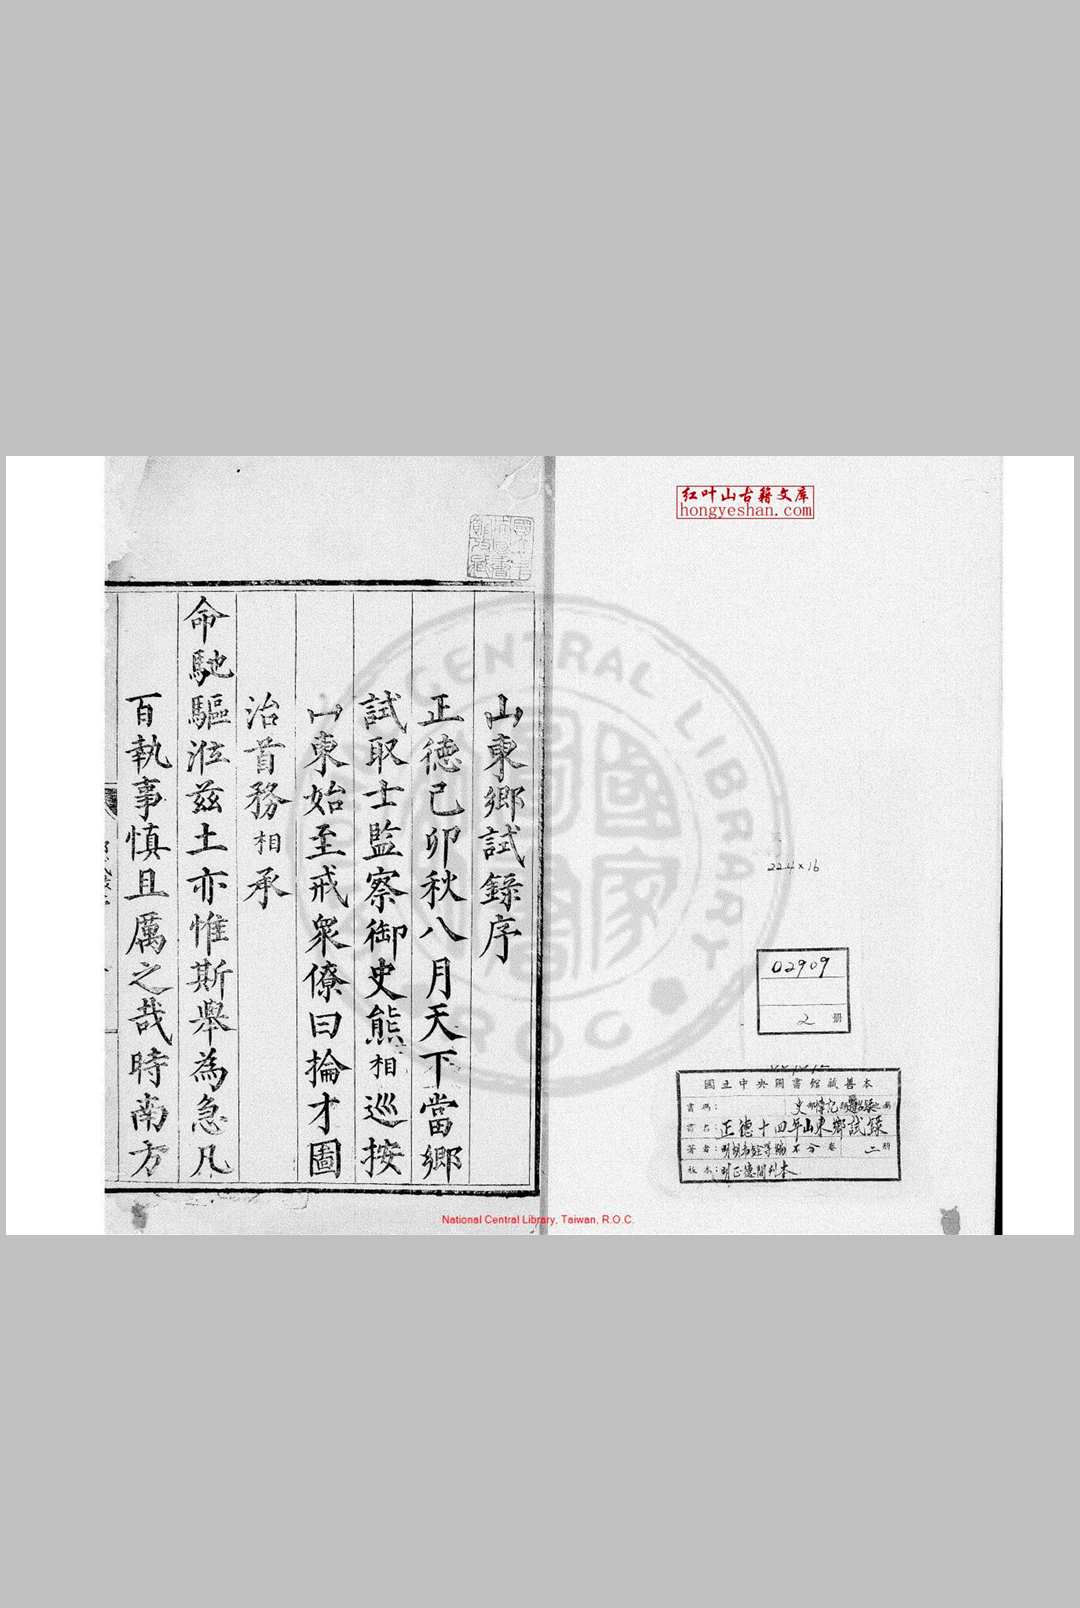 山東鄉試錄序
正德己卯秋八月天下當鄉
試取士監察御史熊相巡按
山東始至戒衆僚曰掄才圖
治首務相承
命馳驅涖兹土亦惟斯舉為急凡
百執事慎且厲之哉時南方
红叶山古籍文库
hongyeshan.com
22.4×16
02909
2 册
國立中央圖書館藏善本
書碼:
書名:正德十四年山東鄉試錄
著者: 不分卷 二册
版本:明正德間刊本
CENTRAL LIBRARY
R O C
國家圖書
National Central Library, Taiwan, R.O.C.